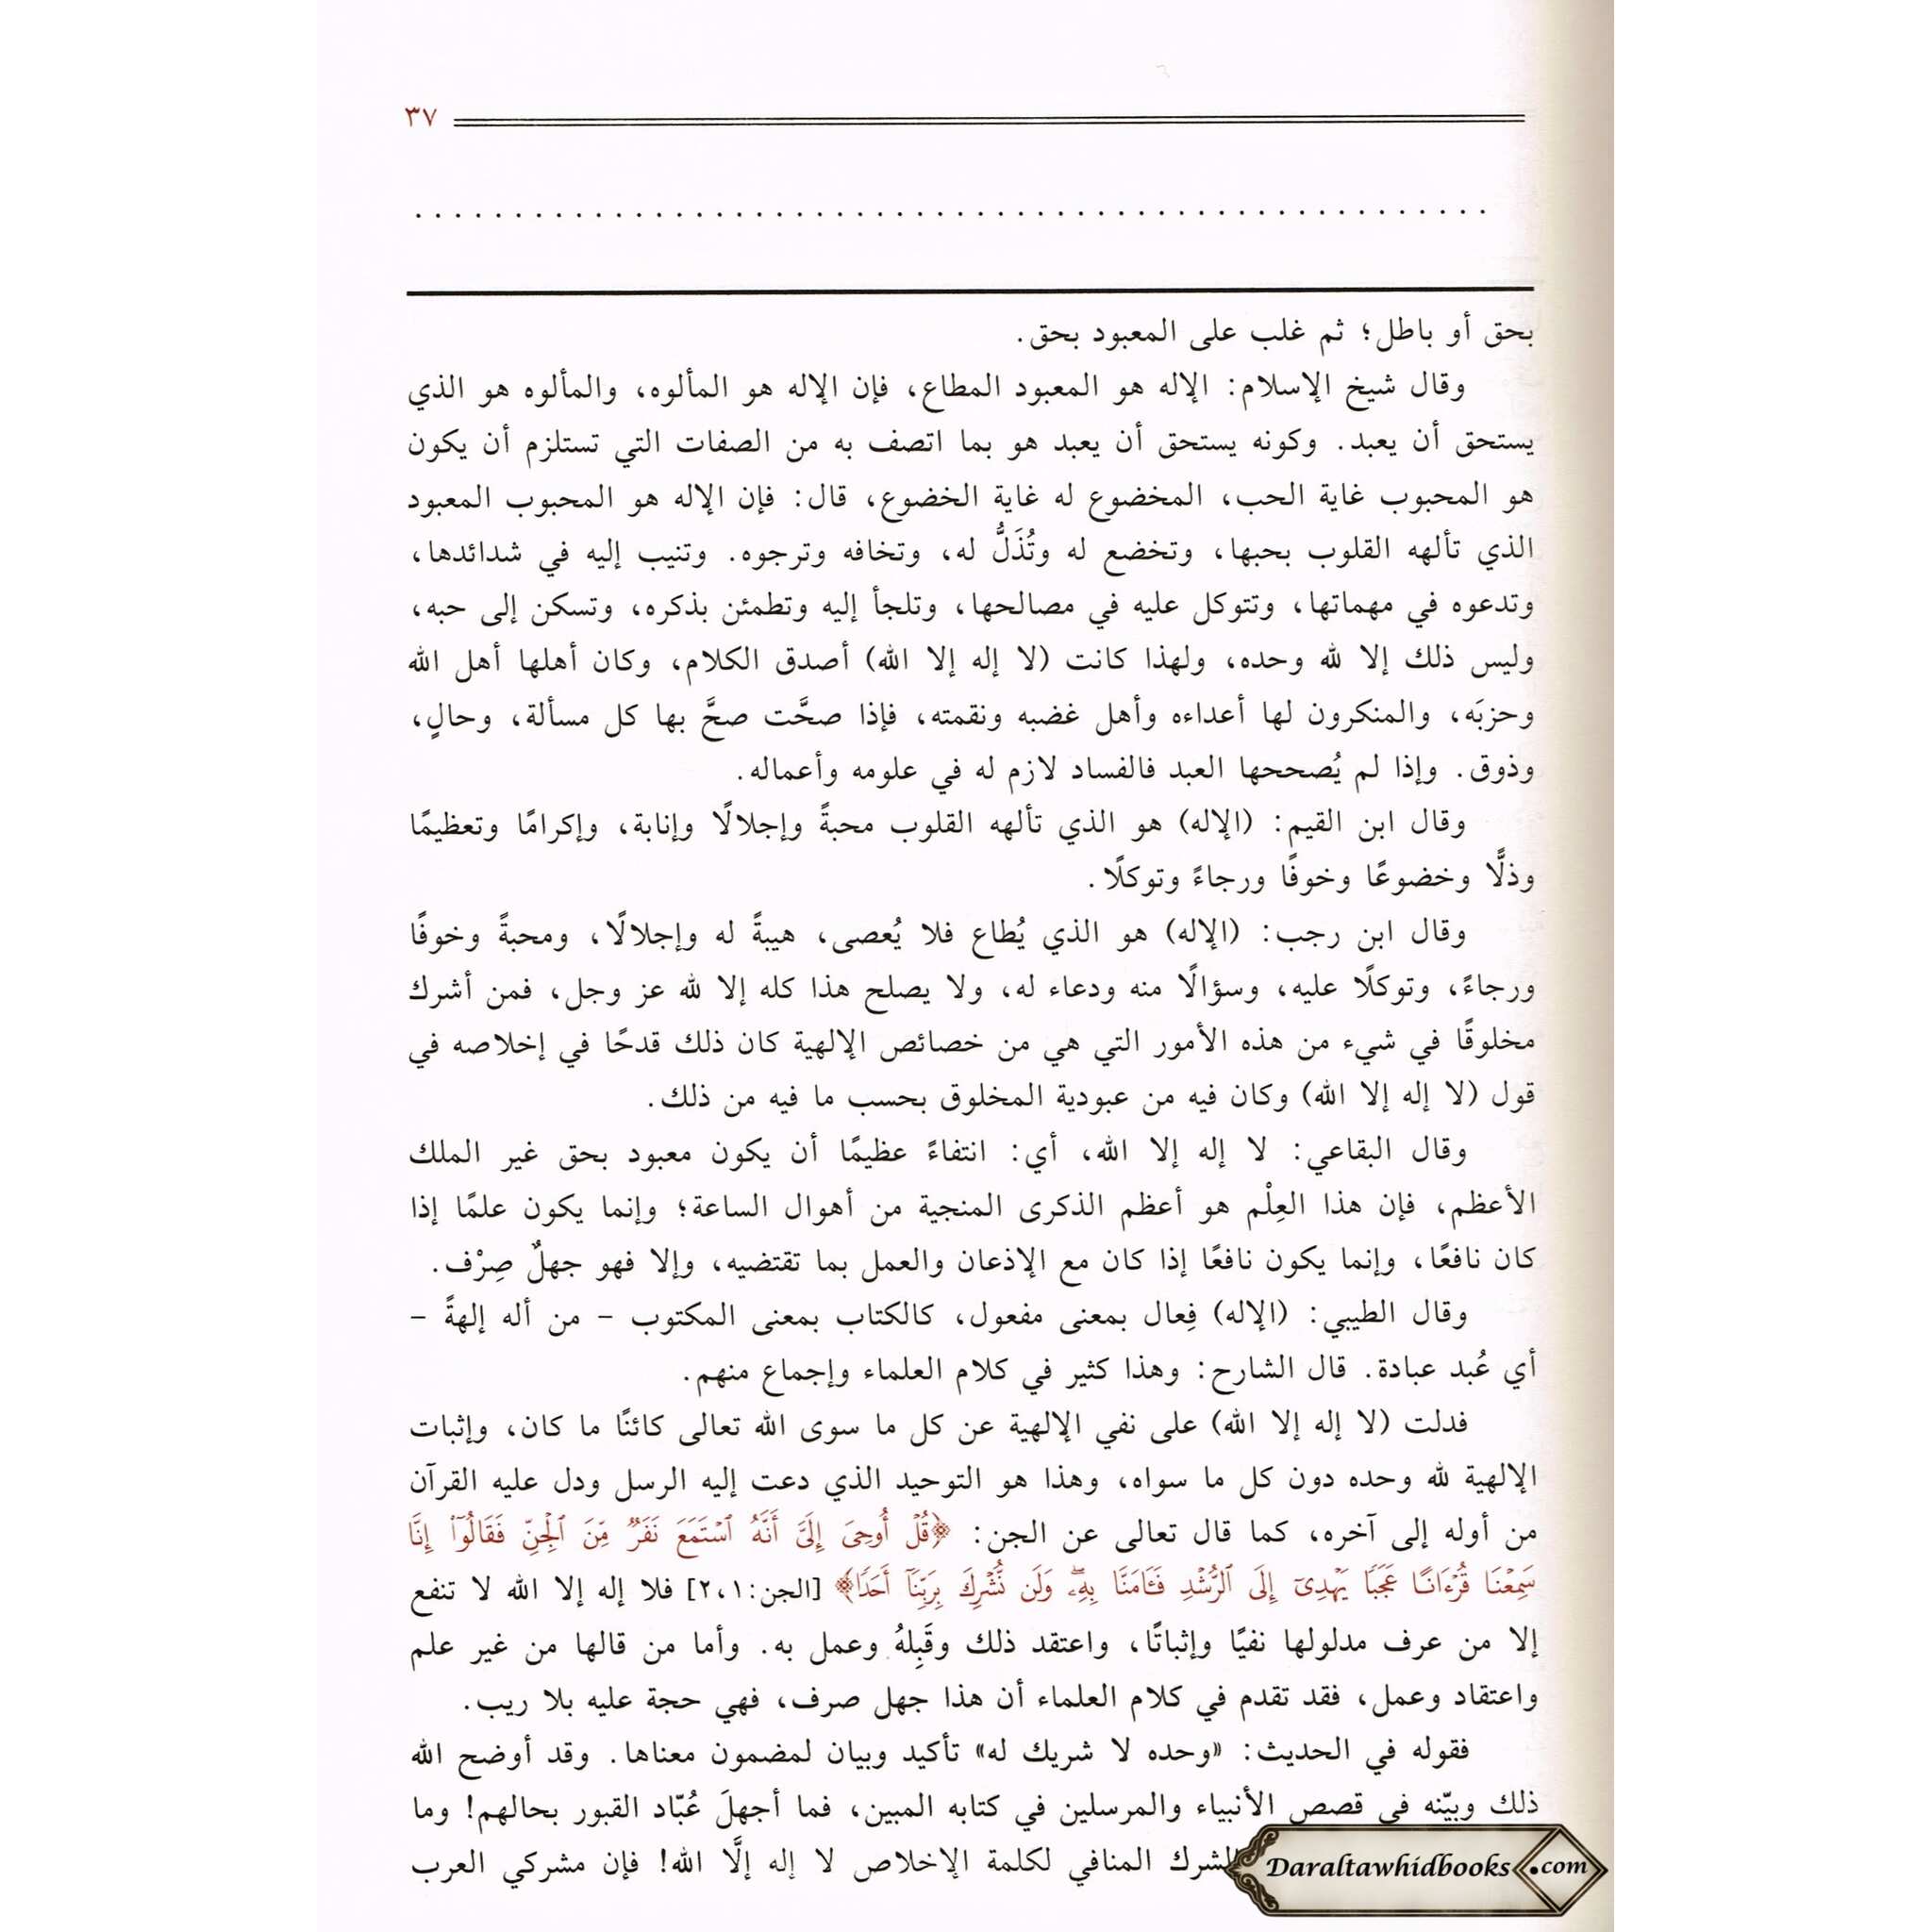 ٣٧
بحق أو باطل؛ ثم غلب على المعبود بحق.
وقال شيخ الإسلام: الإله هو المعبود المطاع، فإن الإله هو المألوه، والمألوه هو الذي
يستحق أن يعبد. وكونه يستحق أن يعبد هو بما اتصف به من الصفات التي تستلزم أن يكون
هو المحبوب غاية الحب، المخضوع له غاية الخضوع، قال: فإن الإله هو المحبوب المعبود
الذي تألهه القلوب بحبها، وتخضع له وتُذَلُّ له، وتخافه وترجوه. وتنيب إليه في شدائدها،
وتدعوه في مهماتها، وتتوكل عليه في مصالحها، وتلجأ إليه وتطمئن بذكره، وتسكن إلى حبه،
وليس ذلك إلا لله وحده، ولهذا كانت (لا إله إلا الله) أصدق الكلام، وكان أهلها أهل الله
وحزبَه، والمنكرون لها أعداءه وأهل غضبه ونقمته، فإذا صحَّت صحَّ بها كل مسألة، وحالٍ،
وذوق. وإذا لم يُصححها العبد فالفساد لازم له في علومه وأعماله.
وقال ابن القيم: (الإله) هو الذي تألهه القلوب محبةً وإجلالًا وإنابة، وإكرامًا وتعظيمًا
وذلًّا وخضوعًا وخوفًا ورجاءً وتوكلًا.
وقال ابن رجب: (الإله) هو الذي يُطاع فلا يُعصى، هيبةً له وإجلالًا، ومحبةً وخوفًا
ورجاءً، وتوكلًا عليه، وسؤالًا منه ودعاء له، ولا يصلح هذا كله إلا لله عز وجل، فمن أشرك
مخلوقًا في شيء من هذه الأمور التي هي من خصائص الإلهية كان ذلك قدحًا في إخلاصه في
قول (لا إله إلا الله) وكان فيه من عبودية المخلوق بحسب ما فيه من ذلك.
وقال البقاعي: لا إله إلا الله، أي: انتفاءً عظيمًا أن يكون معبود بحق غير الملك
الأعظم، فإن هذا العِلْم هو أعظم الذكرى المنجية من أهوال الساعة؛ وإنما يكون علمًا إذا
كان نافعًا، وإنما يكون نافعًا إذا كان مع الإذعان والعمل بما تقتضيه، وإلا فهو جهلٌ صِرْف.
وقال الطيبي: (الإله) فِعال بمعنى مفعول، كالكتاب بمعنى المكتوب – من أله إلهةً –
أي عُبد عبادة. قال الشارح: وهذا كثير في كلام العلماء وإجماع منهم.
فدلت (لا إله إلا الله) على نفي الإلهية عن كل ما سوى الله تعالى كائنًا ما كان، وإثبات
الإلهية لله وحده دون كل ما سواه، وهذا هو التوحيد الذي دعت إليه الرسل ودل عليه القرآن
من أوله إلى آخره، كما قال تعالى عن الجن: ﴿قُلْ أُوحِىَ إِلَىَّ أَنَّهُ ٱسْتَمَعَ نَفَرٌ مِّنَ ٱلْجِنِّ فَقَالُوٓا۟ إِنَّا
سَمِعْنَا قُرْءَانًا عَجَبًا يَهْدِىٓ إِلَى ٱلرُّشْدِ فَـَٔامَنَّا بِهِۦ وَلَن نُّشْرِكَ بِرَبِّنَآ أَحَدًا﴾ [الجن:٢،١] فلا إله إلا الله لا تنفع
إلا من عرف مدلولها نفيًا وإثباتًا، واعتقد ذلك وقَبِلهُ وعمل به. وأما من قالها من غير علم
واعتقاد وعمل، فقد تقدم في كلام العلماء أن هذا جهل صرف، فهي حجة عليه بلا ريب.
فقوله في الحديث: «وحده لا شريك له» تأكيد وبيان لمضمون معناها. وقد أوضح الله
ذلك وبيّنه في قصص الأنبياء والمرسلين في كتابه المبين، فما أجهلَ عُبّاد القبور بحالهم! وما
الشرك المنافي لكلمة الإخلاص لا إله إلَّا الله! فإن مشركي العرب
Daraltawhidbooks.com